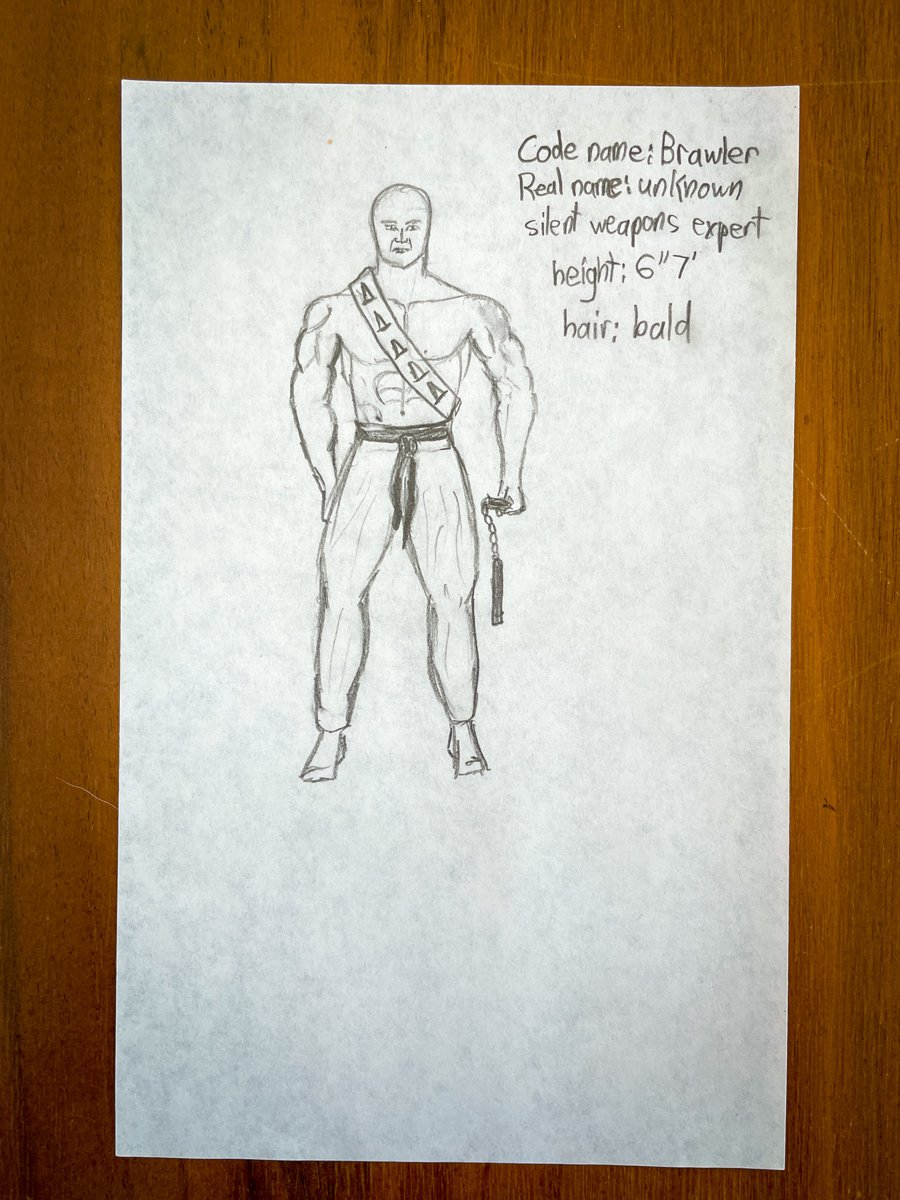 Code name: Brawler
Real name: unknown
silent weapons expert
height: 6"7'
hair: bald